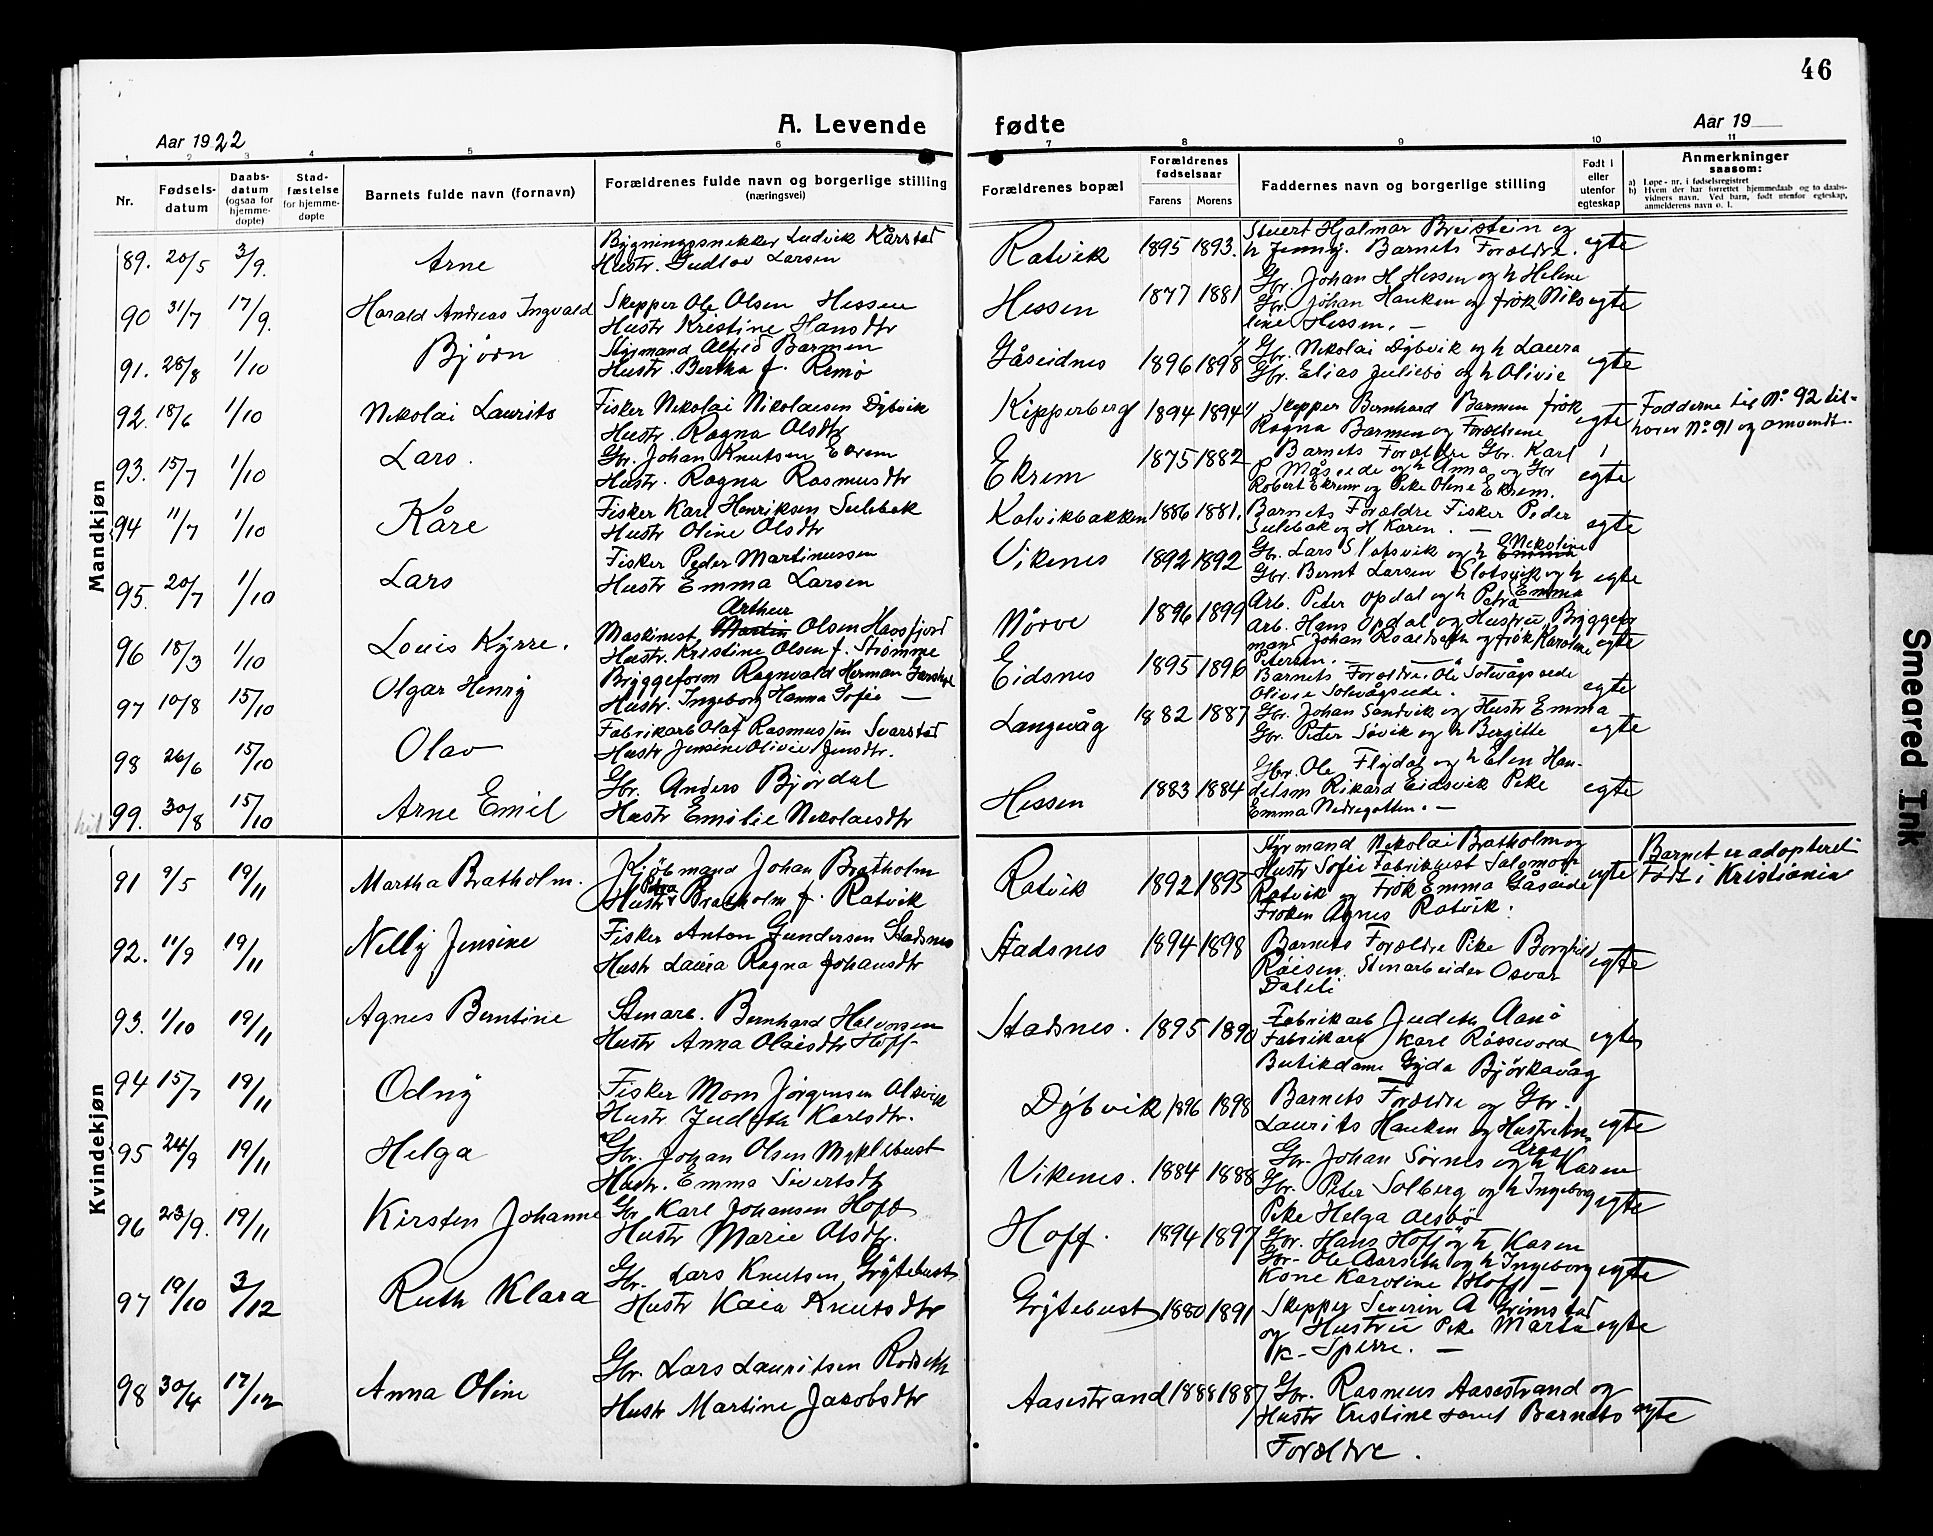 46
Aar 1922
A. Levende
fødte
Aar 19
1 2 3 4 5 6 7 8 9 10 11
Nr.
Fødsels-
datum
Daabs-
datum
(ogsaa for
hjemme-
døpte)
Stad-
fæstelse
for hjemme-
døpte
Barnets fulde navn (fornavn)
Forældrenes fulde navn og borgerlige stilling
(næringsvei)
Forældrenes bopæl
Forældrenes
fødselsaar
Farens Morens
Faddernes navn og borgerlige stilling
Født i
eller
utenfor
egteskap
Anmerkninger
saasom:
a) Løpe-nr. i fødselsregistret
b) Hvem der har forrettet hjemmedaab og to daabs-
vidners navn. Ved barn, født utenfor egteskap,
anmelderens navn o. l.
Mandkjøn
89. 20/5 3/9. Arne
Bygningssnekker Ludvik Kårstad
Hustr. Gudlov Larsen
Ratvik 1895 1893.
Stuert Hjalmar Breistein og
h Jenny. Barnets Forældre. egte
90 31/7 17/9. Harald Andreas Ingvald
Skepper Ole Olsen Hessen
Hustr Kristine Hansdtr
Hessen 1877 1881
Gbr. Johan H Hessen og h Helene
Gbr. Johan Hauken og frøk Niko egte
line Hessen. —
91. 28/8 1/10 Bjørn
Styrmand Alfred Barmen
Hustr. Bertha f. Remø
Gåseidnes 1896 1898
Gbr. Nikolai Dybvik og h Laura
Gbr. Elias Juliebø og h Olivie egte
92. 18/6 1/10 Nikolai Laurits
Fisker Nikolai Nikolaisen Dybvik
Hustr. Ragna Olsdtr
Kipperberg 1894 1894
Skepper Bernhard Barmen frøk
Ragna Barmen og Forældrene egte
Fadderne til No 92 til-
hører No 91 og omvendt.
93. 15/7 1/10 Lars.
Gbr. Johan Knutsen Ekrem
Hustr. Ragna Rasmusdtr
Ekrem 1875 1882
Barnets Forældre Gbr. Karl
P Måseide og h Anna og Gbr
Robert Ekrem og Pike Oline Ekrem. egte
94 11/7 1/10 Kåre
Fisker Karl Henriksen Sulebak
Hustr Oline Olsdtr
Kalvikbakken 1886 1881.
Barnets Forældre Fisker Peder
Sulebak og H Karen. — egte
95. 20/7 1/10 Lars
Fisker Peder Martinussen
Hustr Emma Larsen
Vikenes 1892 1892
Gbr. Lars Slotsvik og h Nikoline
Gbr. Bernt Larsen Slotsvik og h Emma egte
96 18/3 1/10 Louis Kyrre.
Maskinest Arthur Olsen Hassfjord
Hustr. Kristine Olsen f. Strømme
Nörve 1896 1899
Arb. Peter Opdal og h Petra
Arb. Hans Opdal og Hustru Bryggefor
mand Johan Roaldseth og frøk Karoline
Petersen. — egte
97 10/8 15/10 Olgar Henry
Bryggeform Ragnvald Herman
Hustr. Ingeborg Hanna Sofie —
Eidsnes 1895 1896
Barnets Forældre. Ole Solevågseide
Olivie Solevågseide. egte
98 26/6 15/10 Olav
Fabrikarb Olaf Rasmussen Svarstad
Hustr Jensine Olivie Jensdtr.
Langevåg 1882 1887
Gbr. Johan Sandvik og Hustr Emma
Gbr. Peter Søvik og h Bergitte egte
99. 30/8 15/10 Arne Emil
Gbr. Anders Bjørdal
Hustr Emilie Nikolaisdtr
Hessen 1883 1884
Gbr. Ole Flydal og h Elen Han-
delsm Rikard Eidsvik Pike
Emma Nedregotten. — egte
Kvindekjøn
91 9/5 19/11 Martha Bratholm.
Kjøbmand Johan Bratholm
Hustr Petra Bratholm f. Ratvik
Ratvik 1892 1895
Styrmand Nikolai Bratholm og
Hustr Sofie Fabrikbest Salomon
Ratvik og Frøk Emma Gåseide egte
Frøken Agnes Ratvik.
Barnet er adopteret
Født i Kristiania
92. 11/9 19/11 Nelly Jensine
Fisker Anton Gundersen Stadsnes
Hustr Laura Ragna Johansdtr
Stadsnes 1894 1898
Barnets Forældre Pike Borghild
Röisen. Stenarbeider Osvar
Dalsli egte
93. 1/10 19/11 Agnes Berntine
Stenarb. Bernhard Halvorsen
Hustr Anna Olaisdtr Hoff
Stadsnes. 1895 1890
Fabrikarb Judith Aanø
Fabrikarb Karl Røssevold
Butikdame Gyda Björkavåg egte
94 15/7 19/11 Odny
Fisker Mons Jørgensen Alsvik
Hustr Judith Karlsdtr.
Dybvik 1896 1898
Barnets Forældre og Gbr.
Laurits Hauken og Hustru egte
95 24/9 19/11 Helga
Gbr. Johan Olsen Myklebust
Hustr. Emma Sivertsdtr
Vikenes. 1884 1888
Gbr Johan Sørnes og h Karen
Gbr. Peter Solberg og h Ingeborg
Pike Helga Aesbø egte
96 23/9. 19/11 Kirsten Johanne
Gbr Karl Johansen Hoff
Hustr Marie Olsdtr.
Hoff. 1894 1897
Gbr. Hans Hoff og h Karen
Gbr. Ole Aarseth og h Ingeborg
Kone Karoline Hoff — egte
97 19/10 3/12 Ruth Klara
Gbr. Lars Knutsen Grytebust
Hustr Kaia Knutsdtr
Grytebust 1880 1891
Skepper Severin A Grimstad
og Hustru Pike Marta
K- Sperre. — egte
98 30/4 17/12 Anna Oline
Gbr. Lars Lauritsen Rødseth
Hustr Martine Jacobsdtr
Aasestrand 1888 1887
Gbr. Rasmus Aasestrand og
Hustr Kristine samt Barnets egte
Forældre.
Smeared Ink